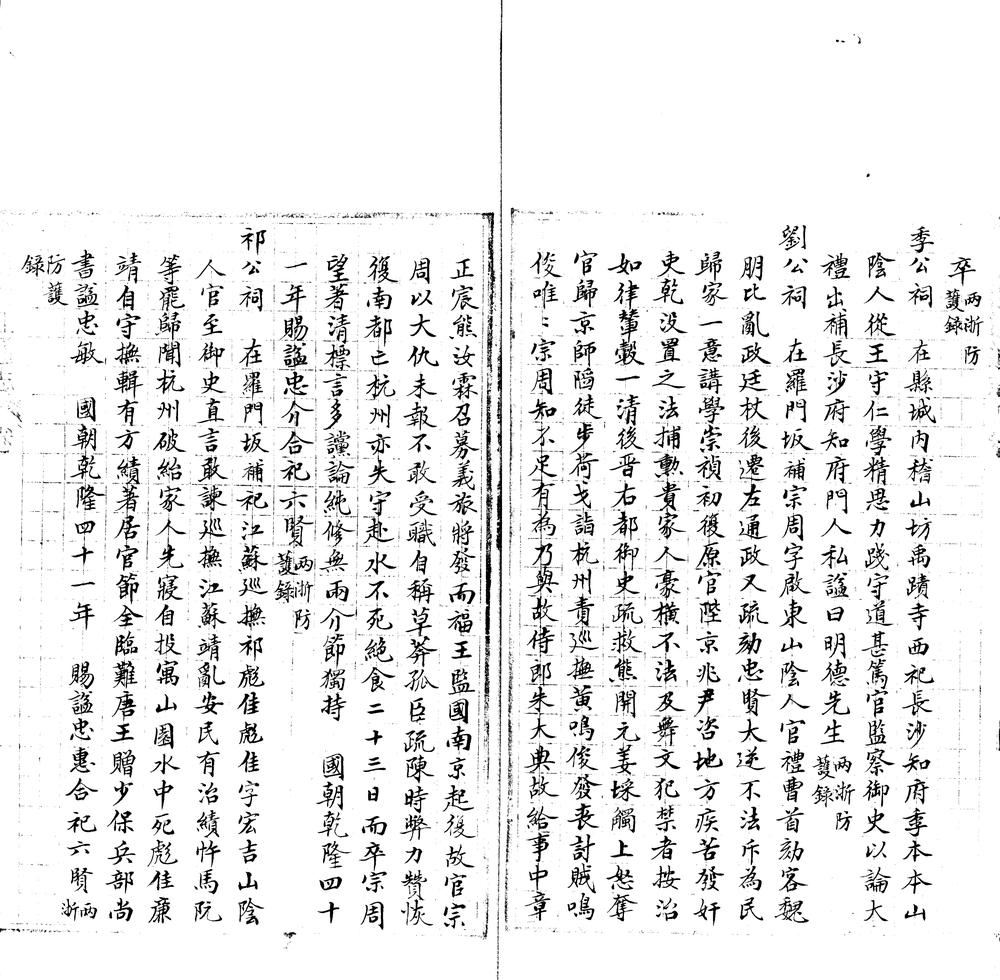 卒兩浙防護錄
季公祠　在縣城内稽山坊禹蹟寺西祀長沙知府季本本山
陰人從王守仁學精思力踐守道甚篤官監察御史以論大
禮出補長沙府知府門人私諡曰明德先生兩浙防護錄
劉公祠　在羅門坂補宗周字啟東山陰人官禮曹首劾客魏
朋比亂政廷杖後遷左通政又疏劾忠賢大逆不法斥為民
歸家一意講學崇禎初復原官陛京兆尹咨地方疾苦發奸
吏乾没置之法捕勲貴家人豪横不法及舞文犯禁者按治
如律輦轂一清後晋右都御史疏救熊開元姜埰觸上怒奪
官歸京師陷徒步荷戈詣杭州責巡撫黄鳴俊發喪討賊鳴
俊唯〻宗周知不足有為乃與故侍郎朱大典故給事中章
正宸熊汝霖召募義旅將發而福王監國南京起復故官宗
周以大仇未報不敢受職自稱草莽孤臣疏陳時弊力贊恢
復南都亡杭州亦失守赴水不死絶食二十三日而卒宗周
望著清標言多讜論純修無兩介節獨持　國朝乾隆四十
一年賜諡忠介合祀六賢兩浙防護錄
祁公祠　在羅門坂補祀江蘇巡撫祁彪佳彪佳字宏吉山陰
人官至御史直言敢諫巡撫江蘇靖亂安民有治績忤馬阮
等罷歸聞杭州破紿家人先寢自投寓山園水中死彪佳廉
靖自守撫輯有方績著居官節全臨難唐王贈少保兵部尚
書諡忠敏　國朝乾隆四十一年　賜諡忠惠合祀六賢兩浙
防護錄